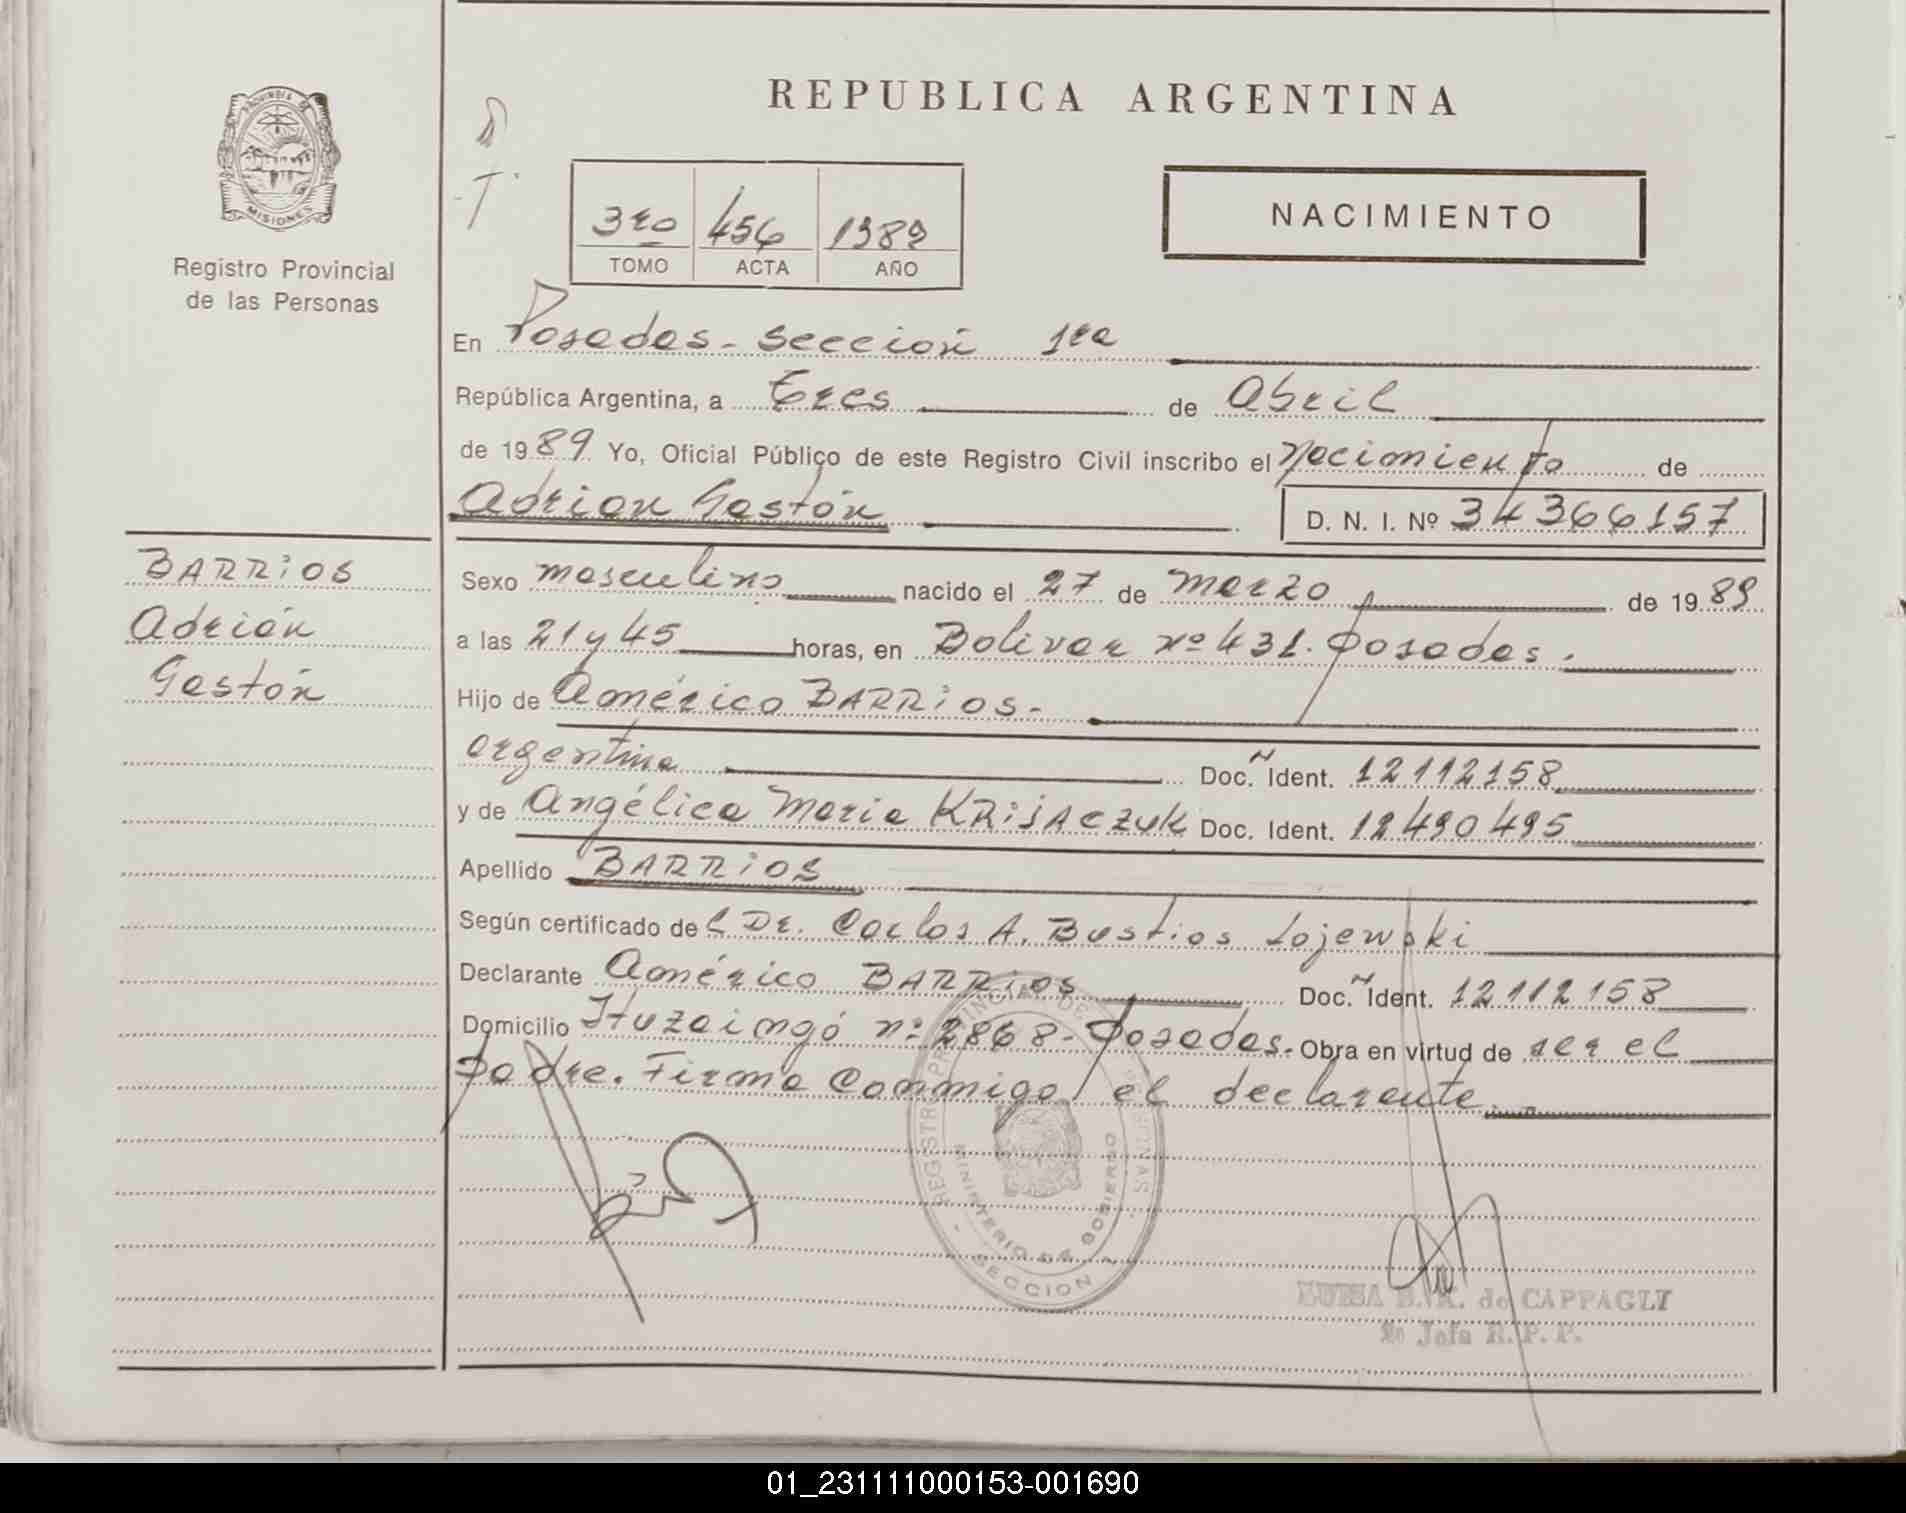 REPUBLICA ARGENTINA
PROVINCIA DE
MISIONES
Registro Provincial
de las Personas
3ro 456 1989
TOMO ACTA AÑO
NACIMIENTO
En Posadas - sección 1ra
República Argentina, a tres de Abril
de 1989 Yo, Oficial Público de este Registro Civil inscribo el nacimiento de
Adrián Gastón D. N. I. Nº 34366157
BARRiOS
Adrián
Gastón
Sexo masculino nacido el 27 de marzo de 1989
a las 21 y 45 horas, en Bolivar nº 431. Posadas.
Hijo de Américo BARRiOS.-
argentina Doc. Ident. 12112158
y de Angélica Maria KRiSACZUK Doc. Ident. 12490495
Apellido BARRiOS
Según certificado del Dr. Carlos A. Bustios Lojewski
Declarante Américo BARRiOS Doc. Ident. 12112158
Domicilio Ituzaingó nº 2868 - Posadas. Obra en virtud de ser el
padre. Firma conmigo el declarante.
REGISTRO PROVINCIAL DE PERSONAS
MINISTERIO DE GOBIERNO
SECCION 1
LUISA B. K. de CAPPAGLI
2º Jefa R. P. P.
01_231111000153-001690